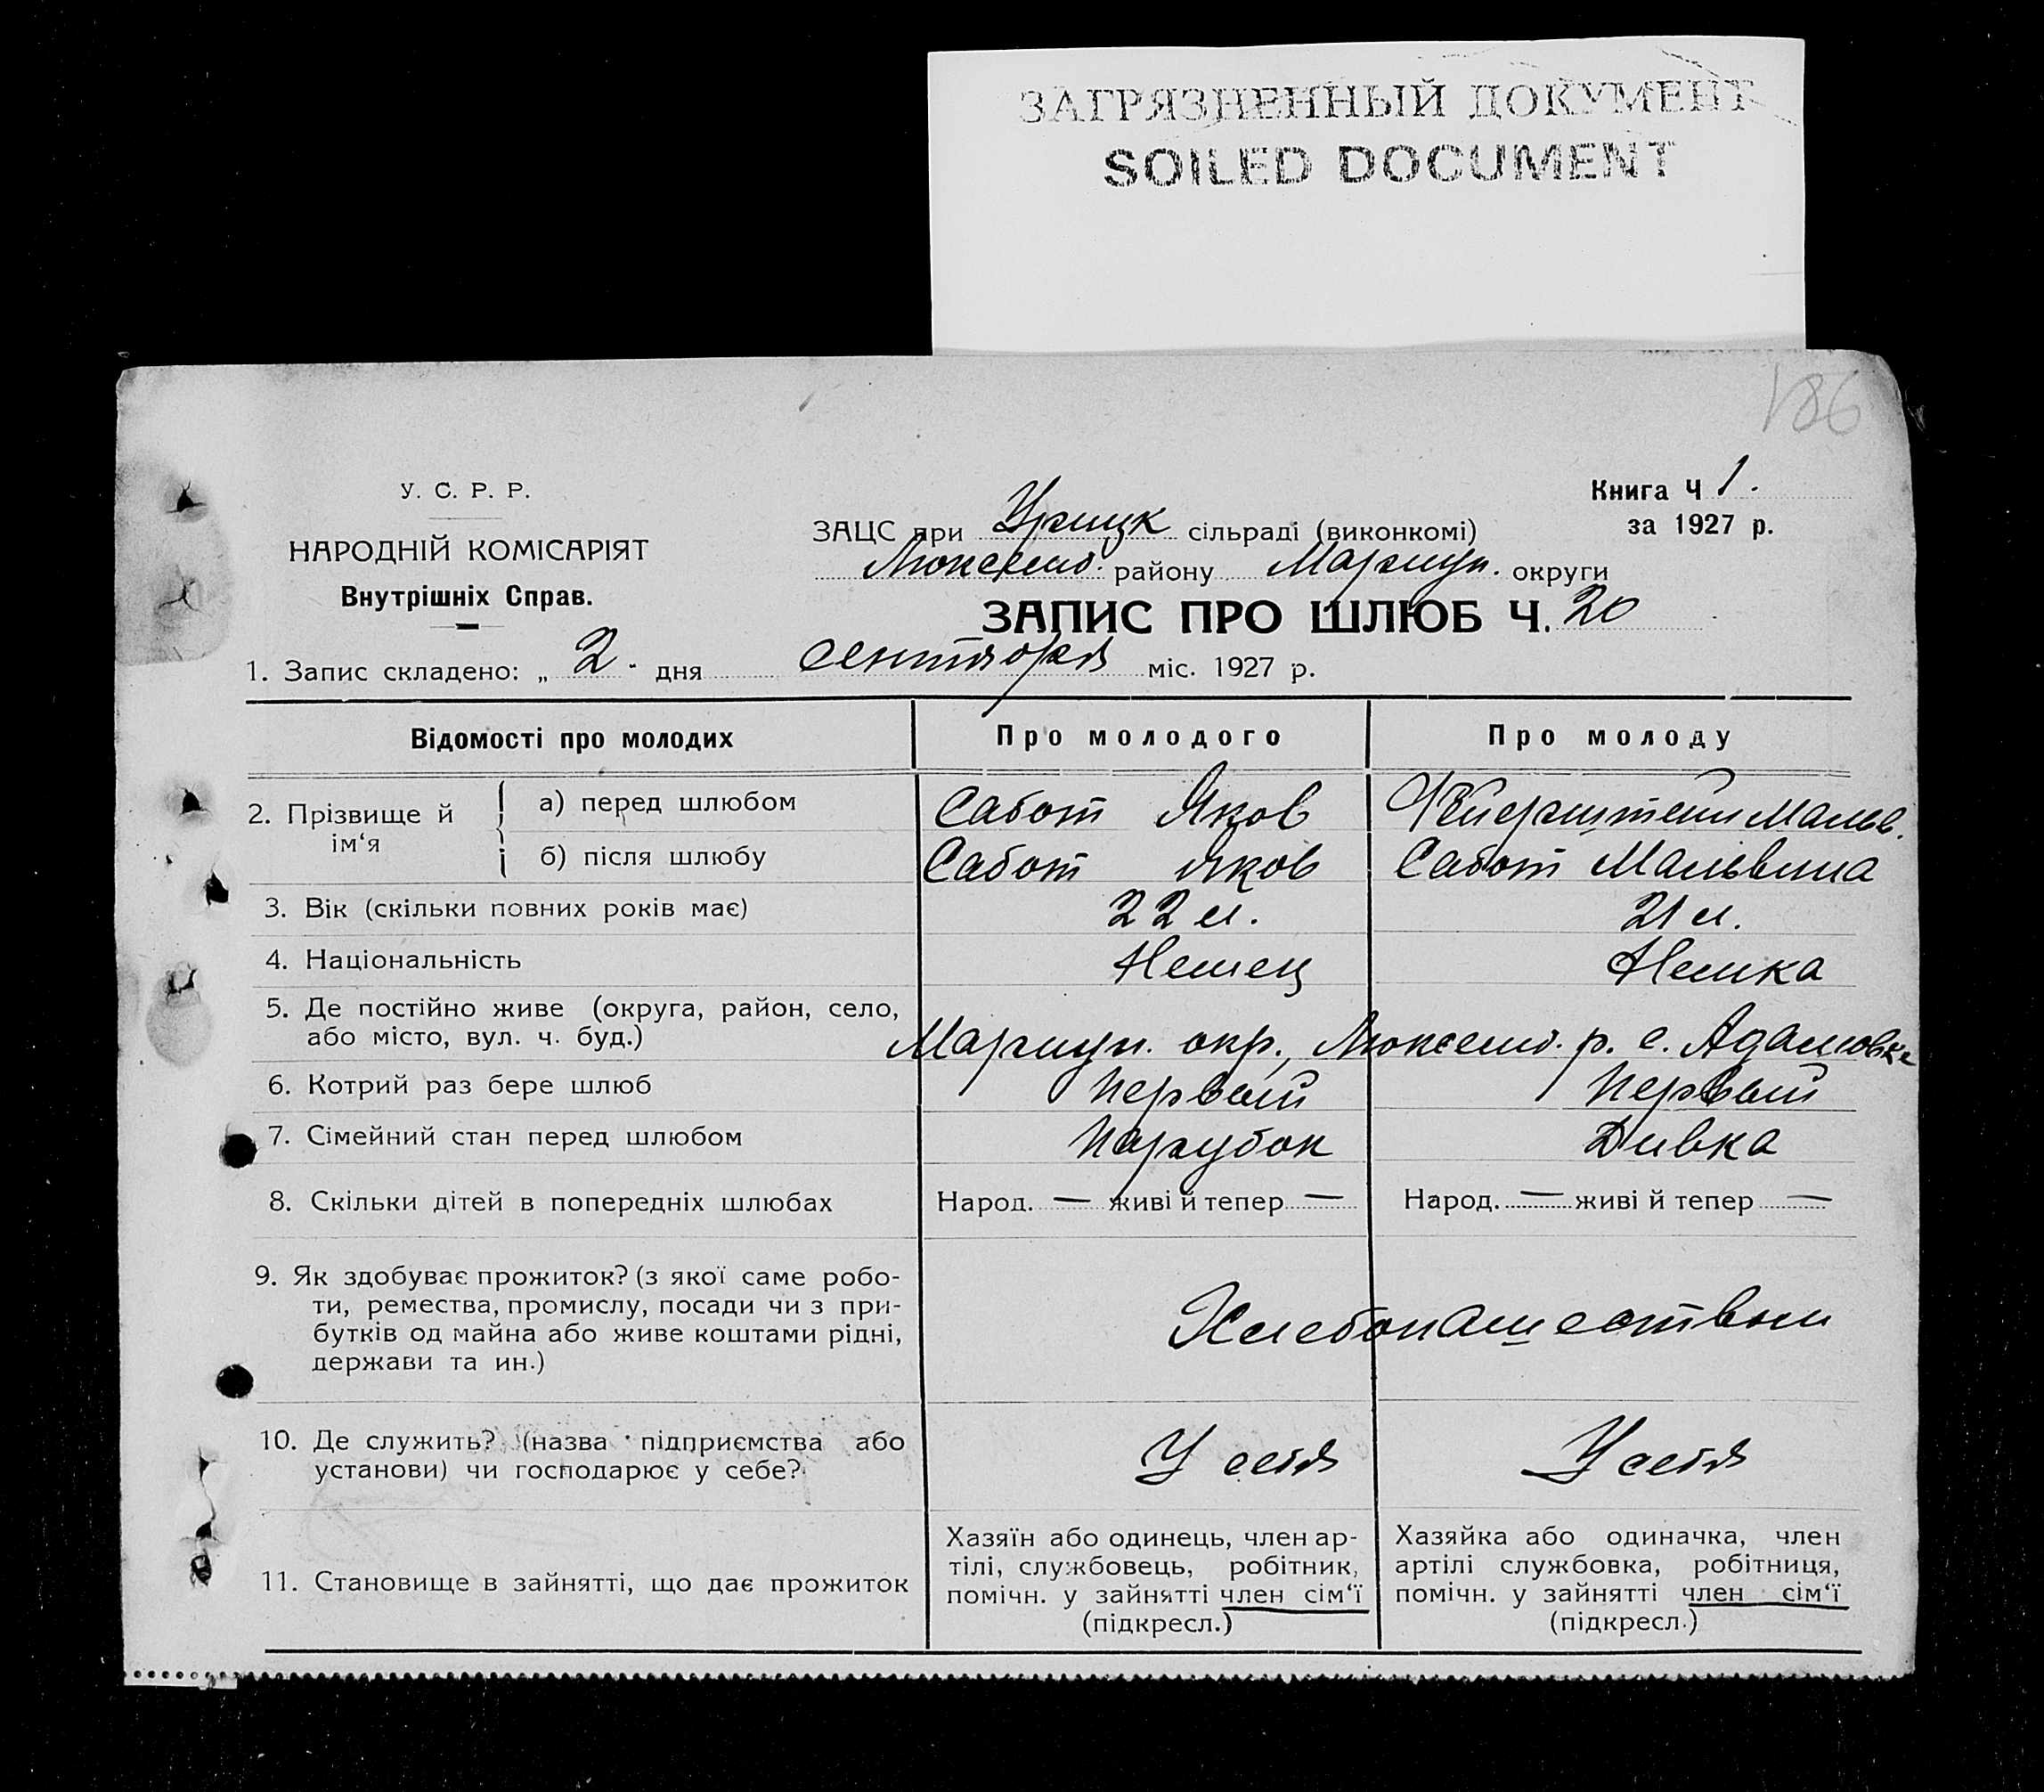 ЗАГРЯЗНЕННЫЙ ДОКУМЕНТ
SOILED DOCUMENT
186
У. С. Р. Р.
НАРОДНІЙ КОМІСАРІЯТ
Внутрішніх Справ.
Книга Ч 1.
за 1927 р.
ЗАЦС при Урицк сільраді (виконкомі)
Люксемб. району Мариуп. округи
ЗАПИС ПРО ШЛЮБ Ч. 20
1. Запис складено: „ 2 " дня сентября міс. 1927 р.
Відомості про молодих Про молодого Про молоду
2. Прізвище й ім‘я
а) перед шлюбом Сабот Яков Фейерштейн Мальв.
б) після шлюбу Сабот Яков Сабот Мальвина
3. Вік (скільки повних років має) 22 л. 21 л.
4. Національність Немец Немка
5. Де постійно живе (округа, район, село,
або місто, вул. ч. буд.) Мариуп. окр., Люксемб. р. с. Адамовка
6. Котрий раз бере шлюб Первый Первый
7. Сімейний стан перед шлюбом Парубок Дивка
8. Скільки дітей в попередніх шлюбах Народ. — живі й тепер — Народ. — живі й тепер —
9. Як здобуває прожиток? (з якої саме робо-
ти, ремества, промислу, посади чи з при-
бутків од майна або живе коштами рідні,
держави та ин.)
Хлебопашеством
10. Де служить? (назва підприємства або
установи) чи господарює у себе?
У себя У себя
11. Становище в зайнятті, що дає прожиток
Хазяїн або одинець, член ар-
тілі, службовець, робітник,
помічн. у зайнятті член сім‘ї
(підкресл.)
Хазяйка або одиначка, член
артілі службовка, робітниця,
помічн. у зайнятті член сім‘ї
(підкресл.)